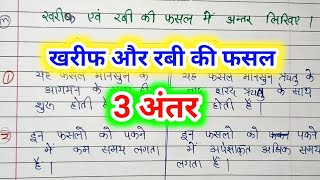 खरीफ एवं रबी की फसल में अन्तर लिखिए।
खरीफ और रबी की फसल
① यह फसल मानसून के
आगमन के
शुरू होती है
यह फसल मानसून ऋतु के
शरद ऋतु के साथ
होती है।
3 अंतर
इन फसलों को पकने
में कम समय लगता
है।
इन फसलों को पकने
में अपेक्षाकृत अधिक समय
लगता है।